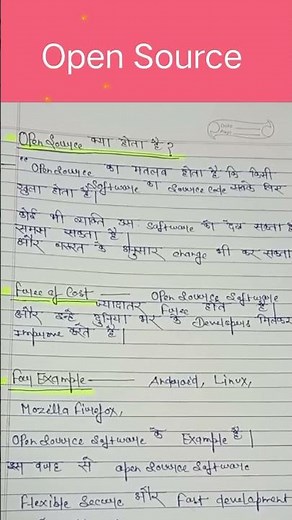 Open Source
Open Source क्या होता है ?
"Open Source का मतलब होता है कि किसी
Software का Source Code सबके लिए
खुला होता है।
कोई भी व्यक्ति उस Software को देख सकता है
समझ सकता है।
और जरूरत के अनुसार change भी कर सकता
Free of Cost — Open Source Software
ज्यादातर Free होते हैं।
और इन्हें दुनिया भर के Developers मिलकर
Improve करते हैं।
For Example — Android, Linux,
Mozilla Firefox,
Open Source Software के Example है।
इस वजह से open Source Software
Flexible Secure और Fast development